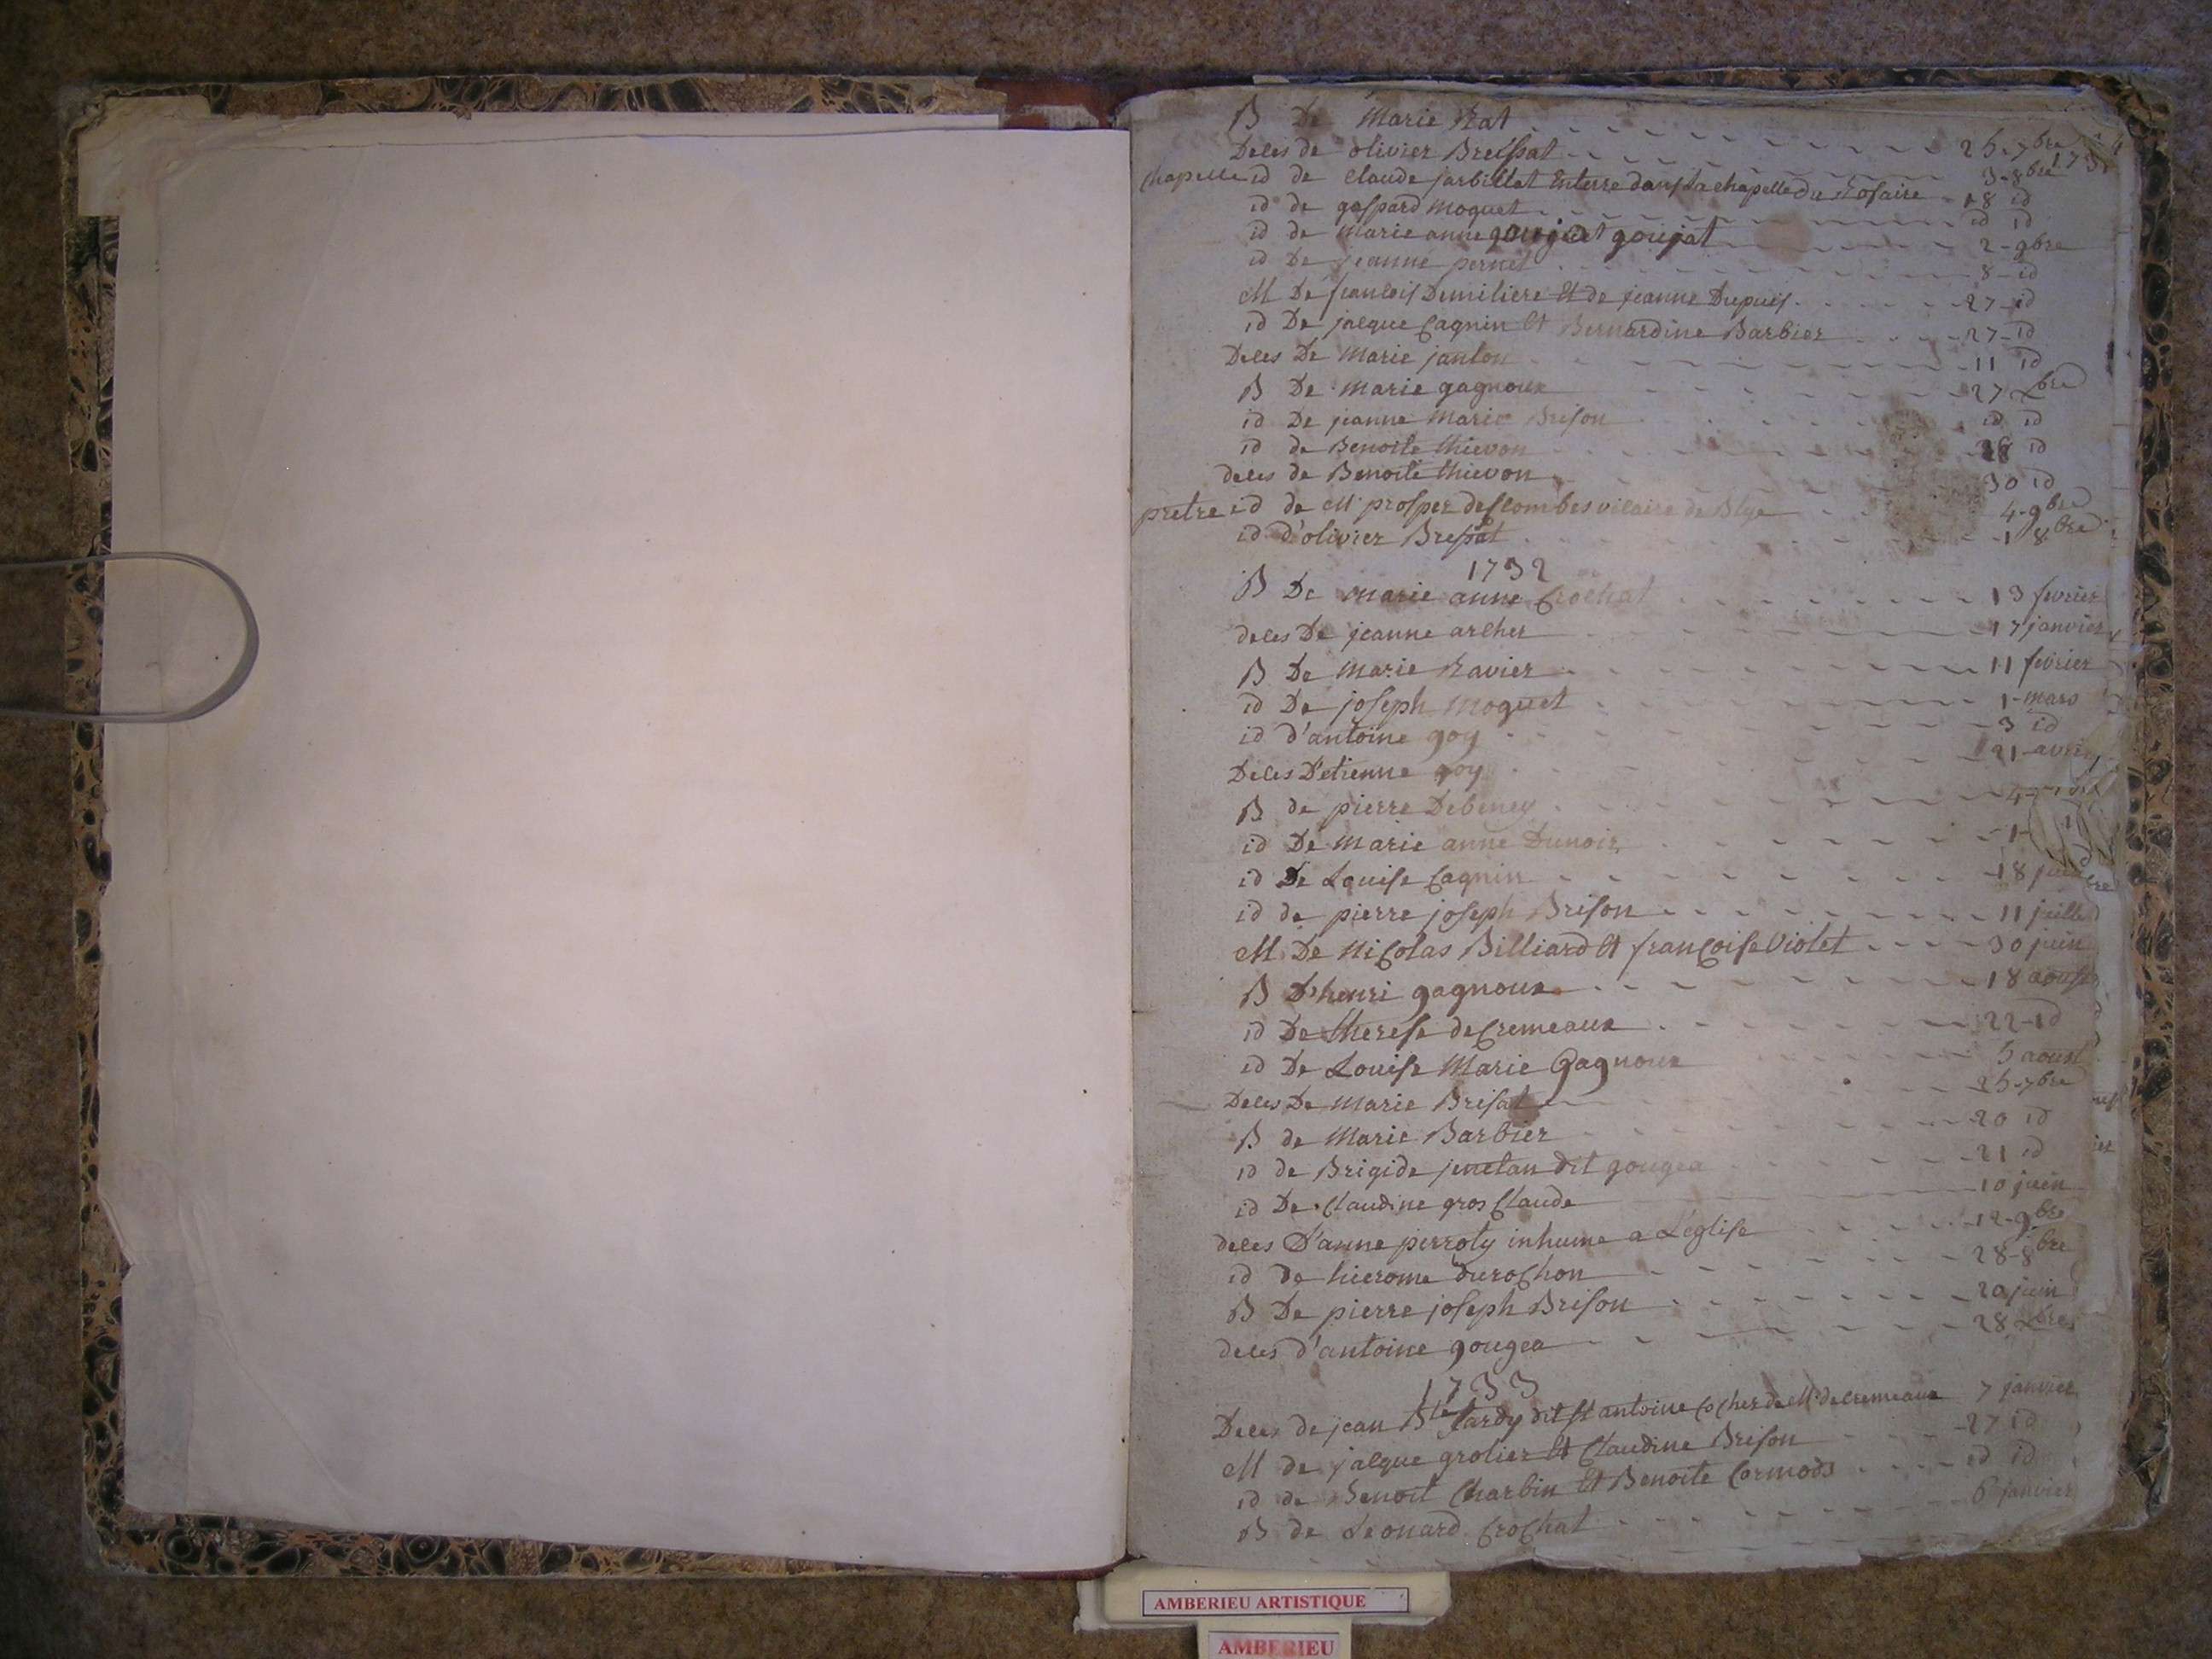 B De Marie Rat
Deces de olivier Breissat 25 7bre 1731
chapelle id de claude jarbillet Enterre dans La chapelle Du Rosaire 3 8bre
id de gaspard Moguet 18 id
id de Marie anne goujat id id
id De jeanne pernet 2 9bre
M De francois Demiliere Et de jeanne Dupuis 8 id
id De jacque Cagnin Et Bernardine Barbier 27 id
Deces De Marie janton 27 id
B De Marie gagnoux 11 id
id De jeanne Marie Brison 27 xbre
id de Benoite thievon id id
deces de Benoite thievon 28 id
pretre id de Mr prosper descombes vicaire de Blye 30 id
id d'olivier Bressat 4 9bre
1 8bre
1732
B De marie anne Crochat 13 fevrier
deces De jeanne archer 17 janvier
B De Marie Ravier 11 fevrier
id De joseph Moguet 1 mars
id d'antoine goy 3 id
Deces D'etienne goy 21 avril
B de pierre Debeney 4
id De Marie anne Dunoir 1
id De Louise Cagnin 18
id de pierre joseph Brison 11 juillet
M De Nicolas Billiard Et francoise Violet 30 juin
B D'henri gagnoux 18 aoust
id De therese de Cremeaux 22 id
id De Louise Marie Gagnoux 5 aoust
Deces De Marie Brisat 25 7bre
B de Marie Barbier 20 id
id de Brigide jenetan dit gougea 21 id
id De Claudine gros Claude 10 juin
deces D'anne perroty inhume a L'eglise 12 9bre
id de hierome durochon 28 8bre
B De pierre joseph Brison 20 juin
deces d'antoine gougea 28 xbre
1733
Deces de jean Bte tardy dit st antoine Cocher de Mr de Cremeaux 7 janvier
M de jacque grolier Et Claudine Brison 27 id
id de Benoit Charbin Et Benoite Cormods id id
B de Leonard Crochat 6 janvier
AMBERIEU ARTISTIQUE
AMBERIEU